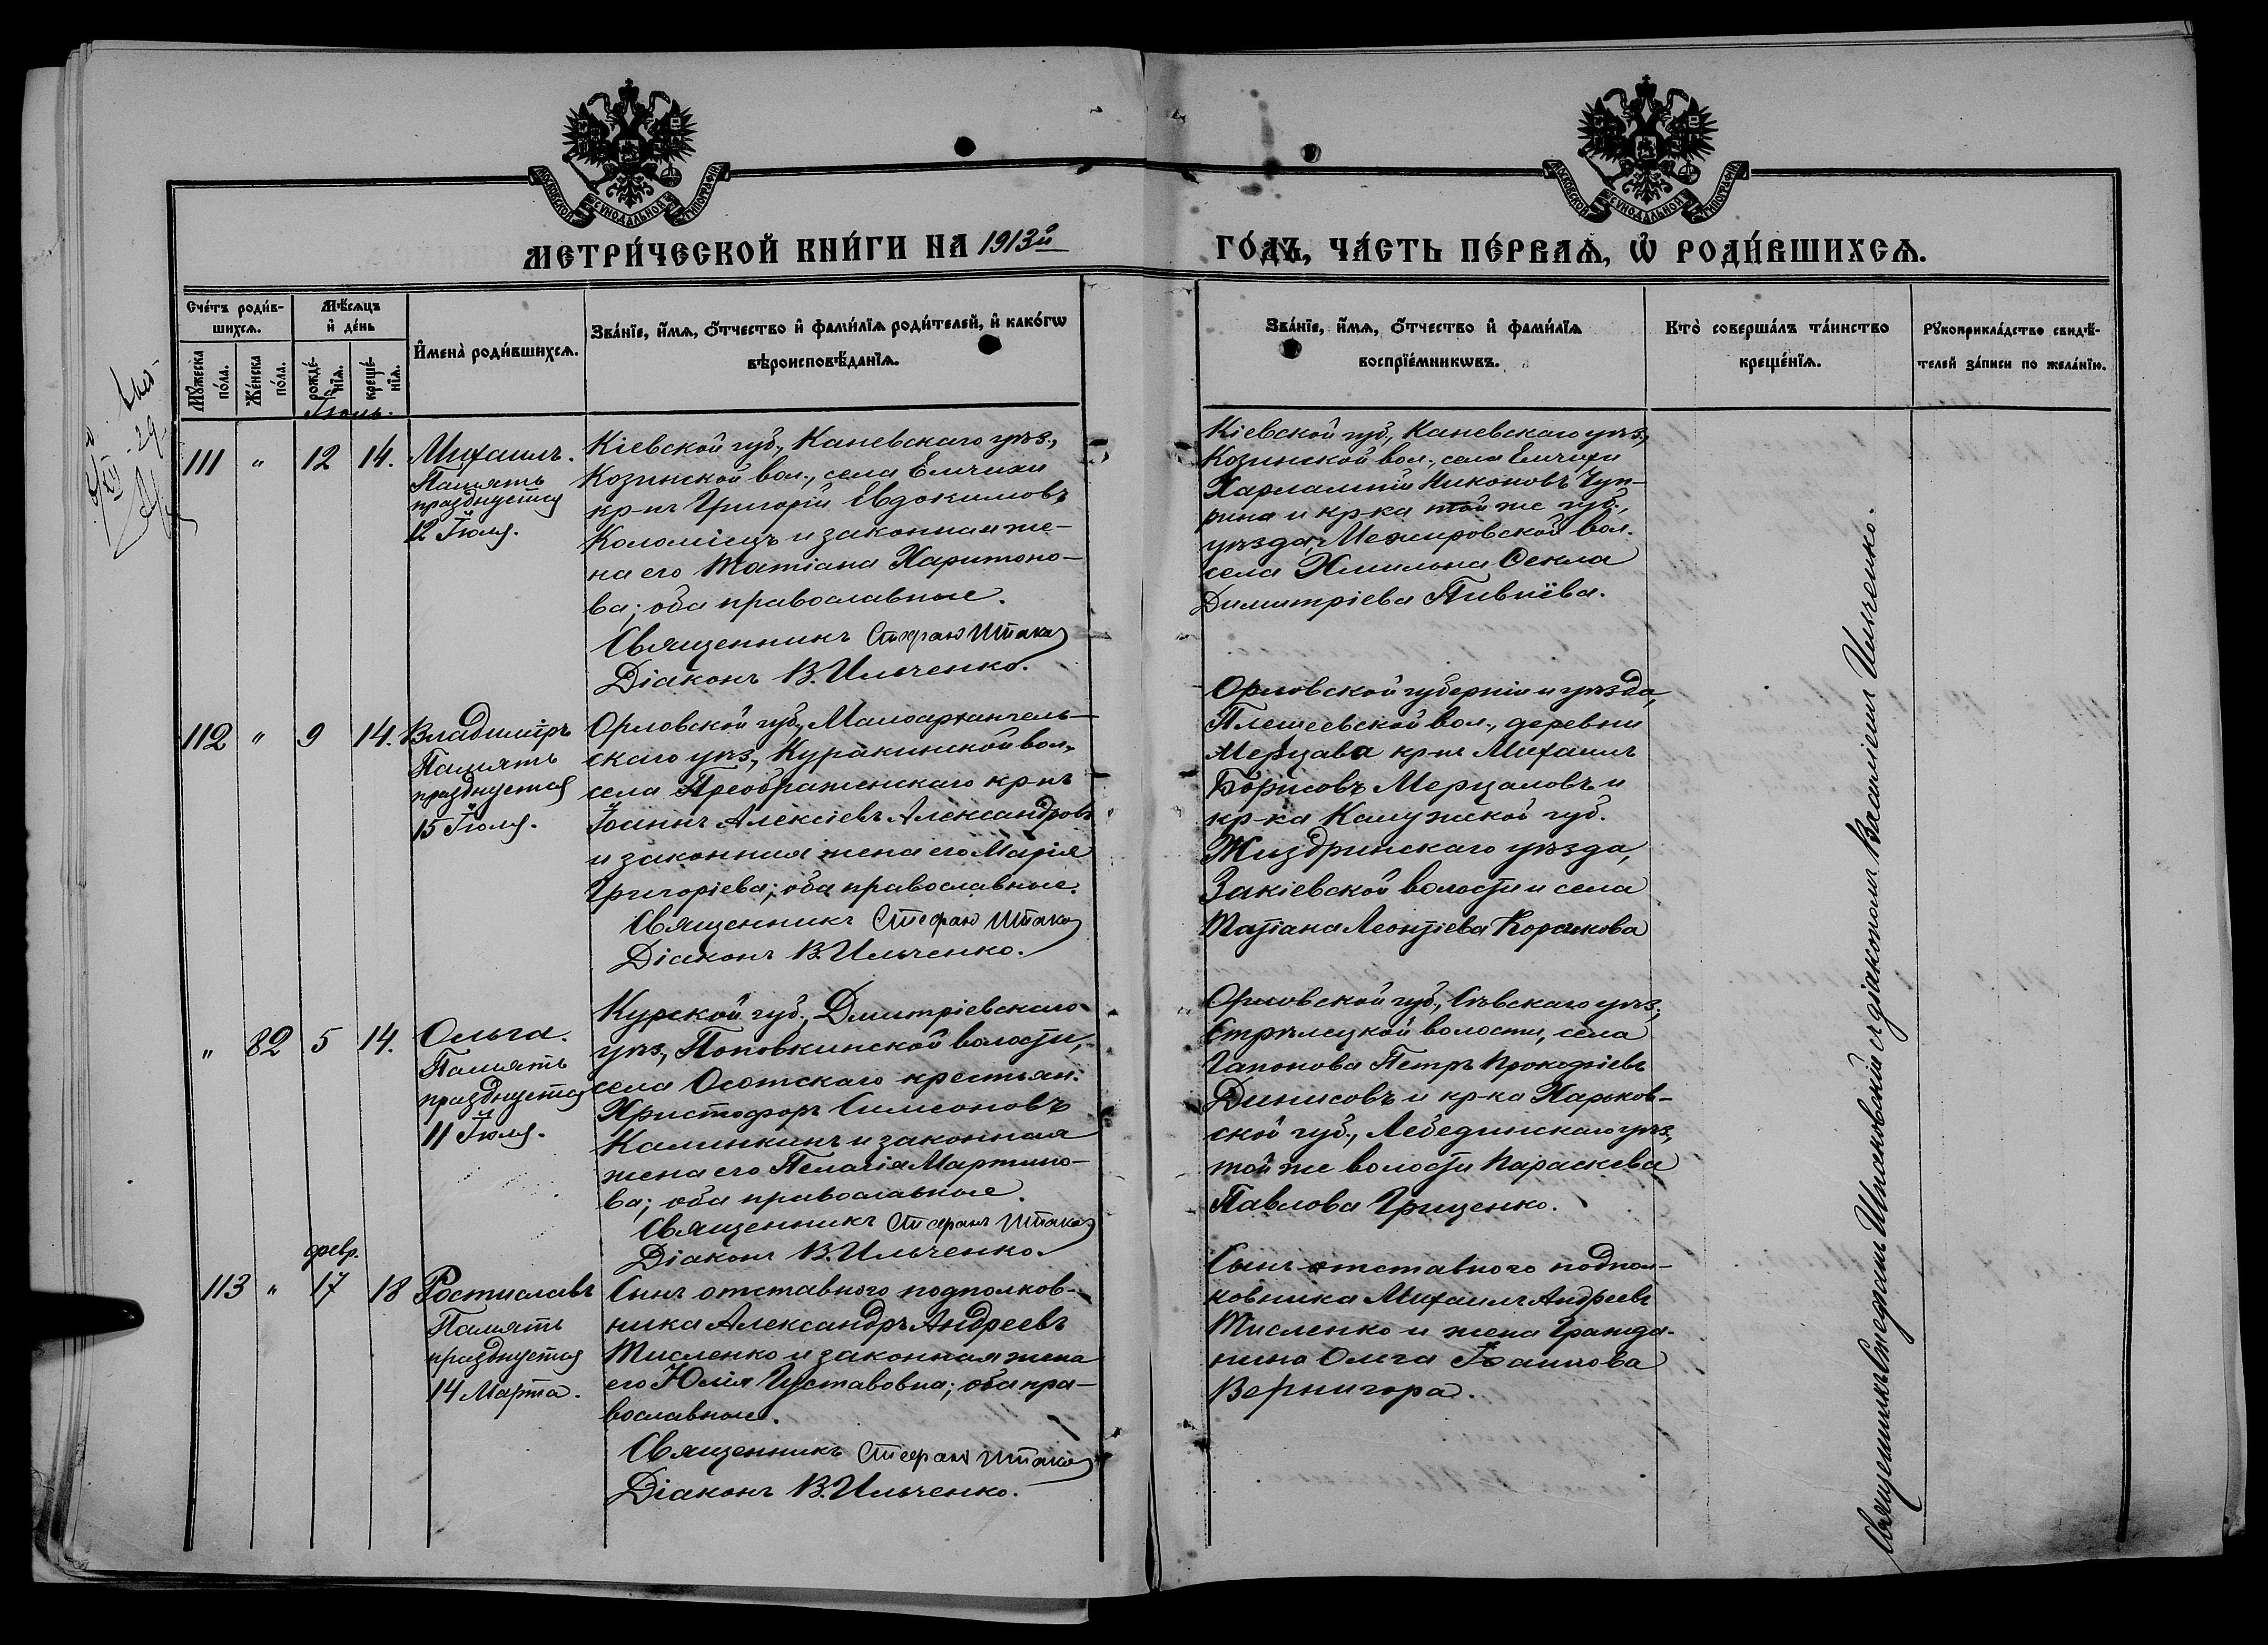 МОСКОВСКОЙ СѴНОДАЛЬНОЙ ТИПОГРАФІИ
МОСКОВСКОЙ СѴНОДАЛЬНОЙ ТИПОГРАФІИ
МЕТРИ́ЧЕСКОЙ КНИ́ГИ НА 1913й
ГО́ДЪ, ЧА́СТЬ ПЕ́РВАѦ, Ѡ҆ РОДИ́ВШИХСѦ.
Сче́тъ роди́в-
шихсѧ.
Мꙋ́жеска по́ла.
Же́нска по́ла.
Мѣ́сѧцъ
и҆ де́нь
рожде́-нїѧ.
креще́-нїѧ.
И҆мена̀ роди́вшихсѧ.
Зва́нїе, и҆́мѧ, ѻ҆́тчество и҆ фами́лїѧ роди́телей, и҆ како́гѡ
вѣроисповѣ́данїѧ.
Зва́нїе, и҆́мѧ, ѻ҆́тчество и҆ фами́лїѧ
воспрїе́мникѡвъ.
Кто̀ соверша́лъ та́инство
креще́нїѧ.
Рꙋкоприкла́дство свидѣ́-
телей за́писи по жела́нїю.
Іюль.
111 " 12 14. Михаилъ.
Память
празднуется
12 Іюля.
Кіевской губ., Каневскаго уѣз.,
Козинской вол., села Емчихи
кр-нъ Григорій Евдокимовъ
Коломіецъ и законная же-
на его Татіана Харитоно-
ва; оба православные.
Священникъ Стефанъ
Діаконъ В. Ильченко.
Кіевской губ., Каневскаго уѣз.,
Козинской вол., села Емчихи
Харлампій Никоновъ Чуп-
рина и кр-ка той же губ.,
уѣзда, Межировской вол.
села Хмильна Ѳекла
Димитріева
112 " 9 14. Владиміръ
Память
празднуется
15 Іюля.
Орловской губ., Малоархангель-
скаго уѣз., Куракинской вол.,
села Преображенскаго кр-нъ
Іоаннъ Алексіевъ Александровъ
и законная жена его Марія
Григоріева; оба православные.
Священникъ Стефанъ
Діаконъ В. Ильченко.
Орловской губерніи и уѣзда,
Плещеевской вол., деревни
кр-нъ Михаилъ
Борисовъ Мерцаловъ и
кр-ка Калужской губ.
Жиздринскаго уѣзда,
Закіевской волости и села
Татіана Леонтіева
" 82 5 14. Ольга.
Память
празднуется
11 Іюля.
Курской губ., Дмитріевскаго
уѣз., Поповкинской волости,
села Осотскаго крестьян.
Христофоръ Симеоновъ
Калинкинъ и законная
жена его Пелагія Мартино-
ва; оба православные.
Священникъ Стефанъ
Діаконъ В. Ильченко.
Орловской губ., Сѣвскаго уѣз.,
Стрѣлецкой волости, села
Гапонова Петръ Прокофіевъ
Динисовъ и кр-ка Харьков-
ской губ., Лебединскаго уѣз.,
той же волости Параскева
Павлова Грищенко.
февр.
113 " 17 18 Ростиславъ
Память
празднуется
14 Марта.
Сынъ отставного подполков-
ника Александръ Андреевъ
Тисленко и законная жена
его Юлія Густавовна; оба пра-
вославные.
Священникъ Стефанъ
Діаконъ В. Ильченко.
Сынъ отставного подпол-
ковника Михаилъ Андреевъ
Тисленко и жена гражда-
нина Ольга Іоаннова
Вернигора.
Священникъ Стефанъ Штаковскій съ діакономъ Василіемъ Ильченко.